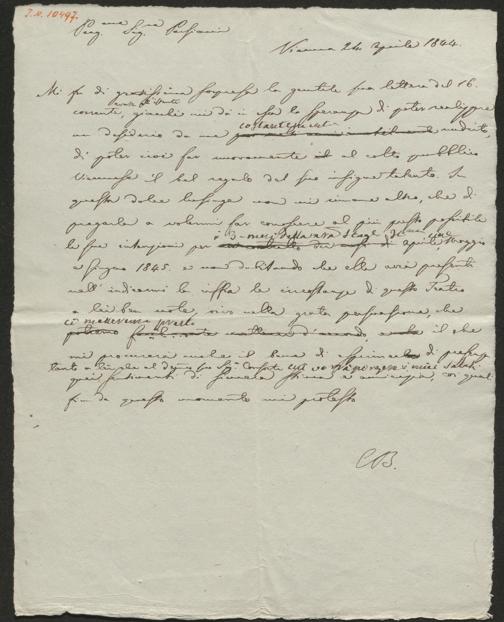 I.N. 10497.
Preg.ma Sig.ra Persiani
Vienna 24 aprile 1844.
Mi fu di gratissima sorpresa la gentile sua lettera del 16.
corrente, giacchè mi dà in essa la speranza di poter realizzare
un desiderio da me costantemente nudrito,
di poter cioè far nuovamente al colto pubblico
Viennese il bel regalo del suo insigne talento. In
questa dolce lusinga non mi rimane altro, che di
pregarla a volermi far conoscere al più presto possibile
le sue intenzioni per i 3 mesi della ventura Stagione cioè aprile, Maggio
e Giugno 1845. e non dubitando che ella avrà presenti
nell' indicarmi la cifra le circostanze di questo Teatro
a lei ben note, vivo nella grata persuasione, che
ci metteremo presto d'accordo il che
mi procurerà anche il bene di
quei sentimenti di sincera stima e amicizia, coi quali
fin da questo momento mi protesto
CB.